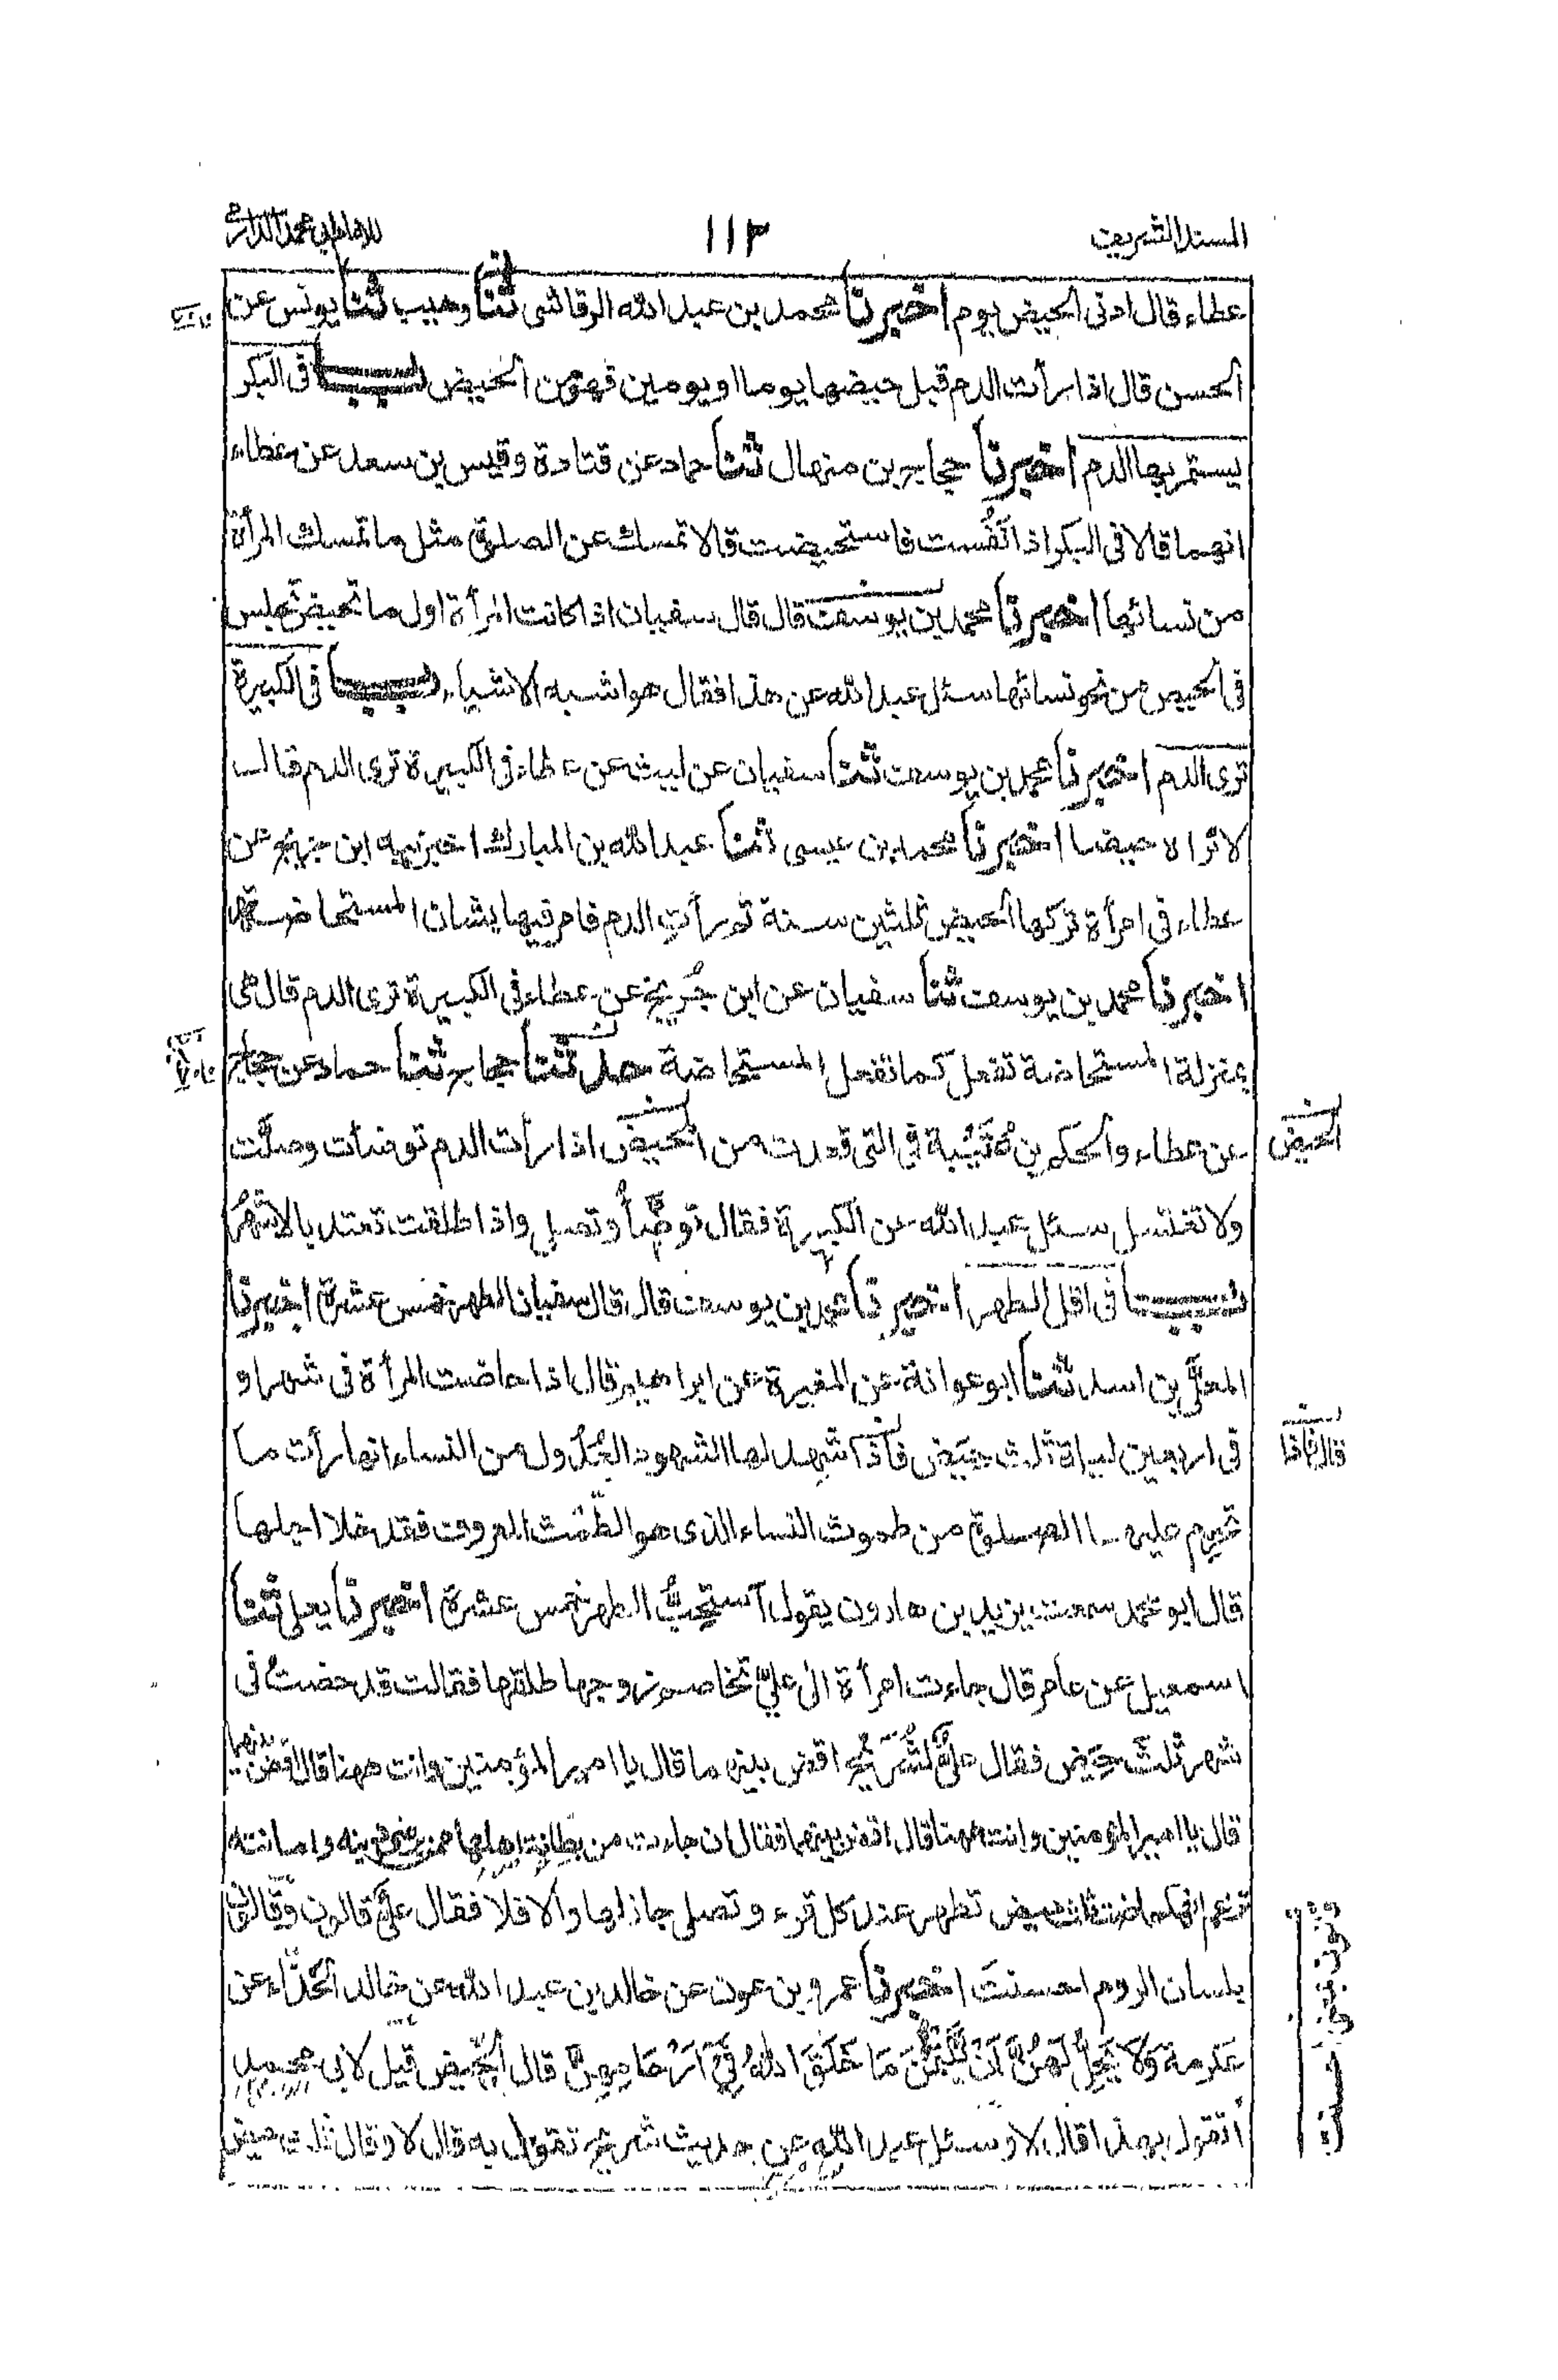 المسند الشريف
١١٣
للامام ابي محمد الدارمي
عطاء قال ادنى الحيض يوم اخبرنا محمد بن عبد الله الرقاشى ثنا وهيب ثنا يونس عن
الحسن قال اذا رأت الدم قبل حيضها يوما او يومين فهو من الحيض باب فى البكر
يستمر بها الدم اخبرنا حجاج بن منهال ثنا حماد عن قتادة وقيس بن سعد عن عطاء
انهما قالا فى البكر اذا نُفِست فاستحيضت قالا تمسك عن الصلوة مثل ما تمسك المرأة
من نسائها اخبرنا محمد بن يوسف قال قال سفيان اذا كانت المرأة اول ما تحيض تجلس
فى الحيض من نحو نسائها سئل عبد الله عن هذا فقال هو اشبه الاشياء باب فى الكبيرة
ترى الدم اخبرنا محمد بن يوسف ثنا سفيان عن ليث عن عطاء فى الكبيرة ترى الدم قال
لا تراه حيضا اخبرنا محمد بن عيسى ثنا عبد الله بن المبارك اخبرنيه ابن جريج عن
عطاء فى امرأة تركها الحيض ثلثين سنة ثم رأت الدم فامر فيها بشان المستحاضة
اخبرنا محمد بن يوسف ثنا سفيان عن ابن جُريج عن عطاء فى الكبيرة ترى الدم قال هى
بمنزلة المستحاضة تفعل كما تفعل المستحاضة حدثنا حجاج ثنا حماد عن حجاج
عن عطاء والحكم بن عُتَيْبة فى التى قعدت من الحيض اذا رأت الدم توضأت وصلّت
الحيض
ولا تغتسل سئل عبد الله عن الكبيرة فقال توضّأُ وتصلي واذا طلقت تعتد بالاشهُر
باب فى اقل الطهر اخبرنا محمد بن يوسف قال قال سفيان الطهر خمس عشرة اخبرنا
المعلّى بن اسد ثنا ابو عوانة عن المغيرة عن ابراهيم قال اذا حاضت المرأة فى شهر او
فى اربعين ليلة ثلث حِيَض فاذا شهد لها الشهود العُدُول من النساء انها رأت ما
قال فاذا
يحرم عليها الصلوة من طموث النساء الذى هو الطَّمْث المعروف فقد خلا اجلها
قال ابو محمد سمعت يزيد بن هارون يقول أستحِبُّ الطهر خمس عشرة اخبرنا يعلى ثنا
اسمعيل عن عامر قال جاءت امرأة الى عليّ تخاصم زوجها طلقها فقالت قد حضتُ فى
شهر ثلثَ حِيَض فقال عليٌّ لشُرَيْح اقض بينهما قال يا امير المؤمنين وانت ههنا قال اقض بينهما
قال يا امير المؤمنين وانت ههنا قال اقض بينهما فقال ان جاءت من بِطانة اهلها ممن يرضى دينه وامانته
تزعم انها حاضت ثلث حيض تطهر عند كل قرء وتصلي جاز لها والا فلا فقال عليٌّ قالون وقالون
بلسان الروم احسنتَ اخبرنا عمرو بن عون عن خالد بن عبد الله عن خالد الحذّاء عن
عكرمة وَلَا يَحِلُّ لَهُنَّ أَنْ يَكْتُمْنَ مَا خَلَقَ اللهُ فِيْ أَرْحَامِهِنَّ قال الحَيْض قيل لابى محمد
أتقول بهذا قال لا وسئل عبد الله عن حديث شريح تقول به قال لا وقال ثلث حيض